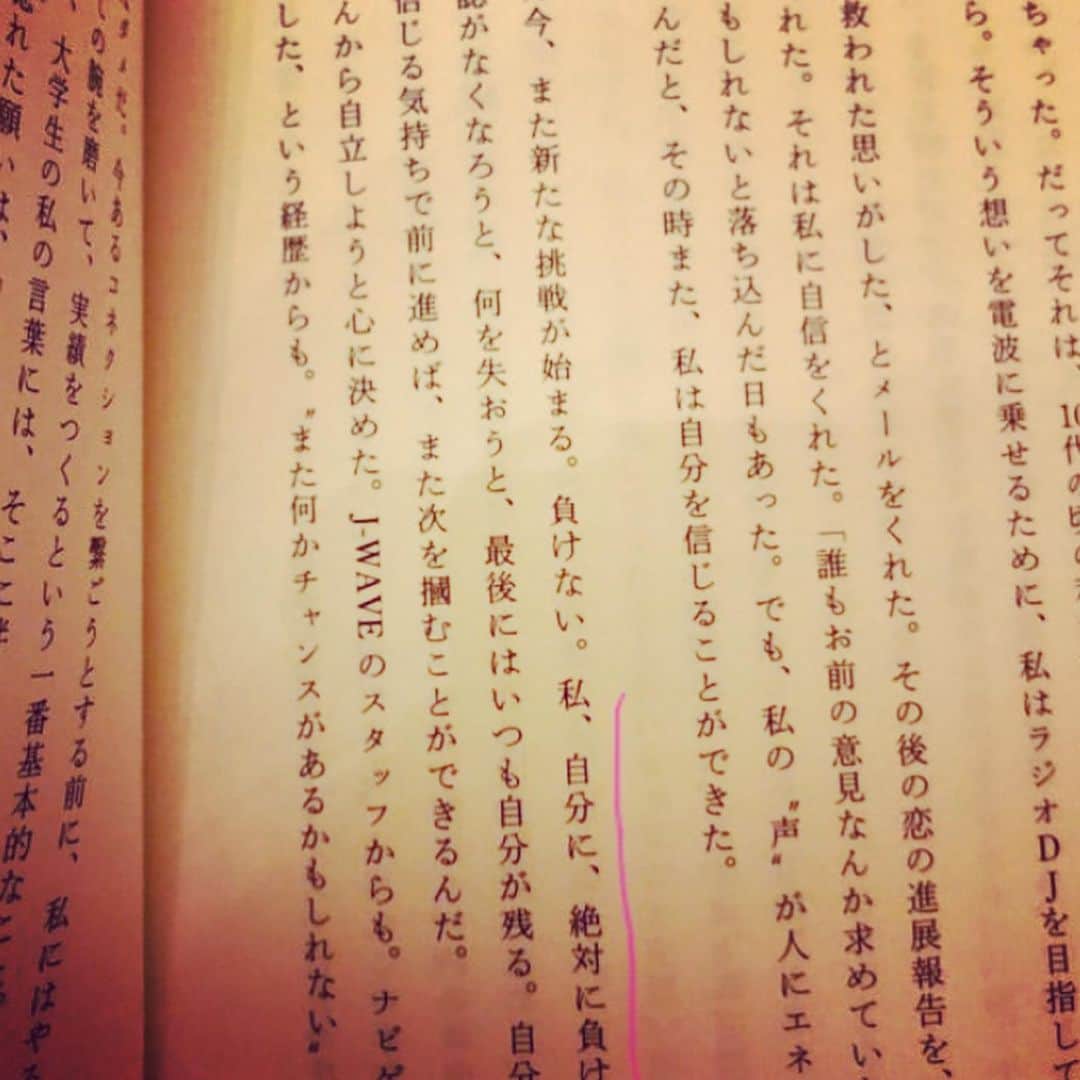 ちゃった。だってそれは、10代の頃の
ら。そういう想いを電波に乗せるために、私はラジオDJを目指して
救われた思いがした、とメールをくれた。その後の恋の進展報告を、
れた。それは私に自信をくれた。「誰もお前の意見なんか求めてい
もしれないと落ち込んだ日もあった。でも、私の〝声〟が人にエネ
んだと、その時また、私は自分を信じることができた。
今、また新たな挑戦が始まる。負けない。私、自分に、絶対に負け
がなくなろうと、何を失おうと、最後にはいつも自分が残る。自分
信じる気持ちで前に進めば、また次を摑むことができるんだ。
んから自立しようと心に決めた。J-WAVEのスタッフからも。ナビゲ
した、という経歴からも。〝また何かチャンスがあるかもしれない〟
今あるコネクションを繋ごうとする前に、私にはやる
しの腕を磨いて、実績をつくるという一番基本的なこ
大学生の私の言葉には、そこに
れた願いは、